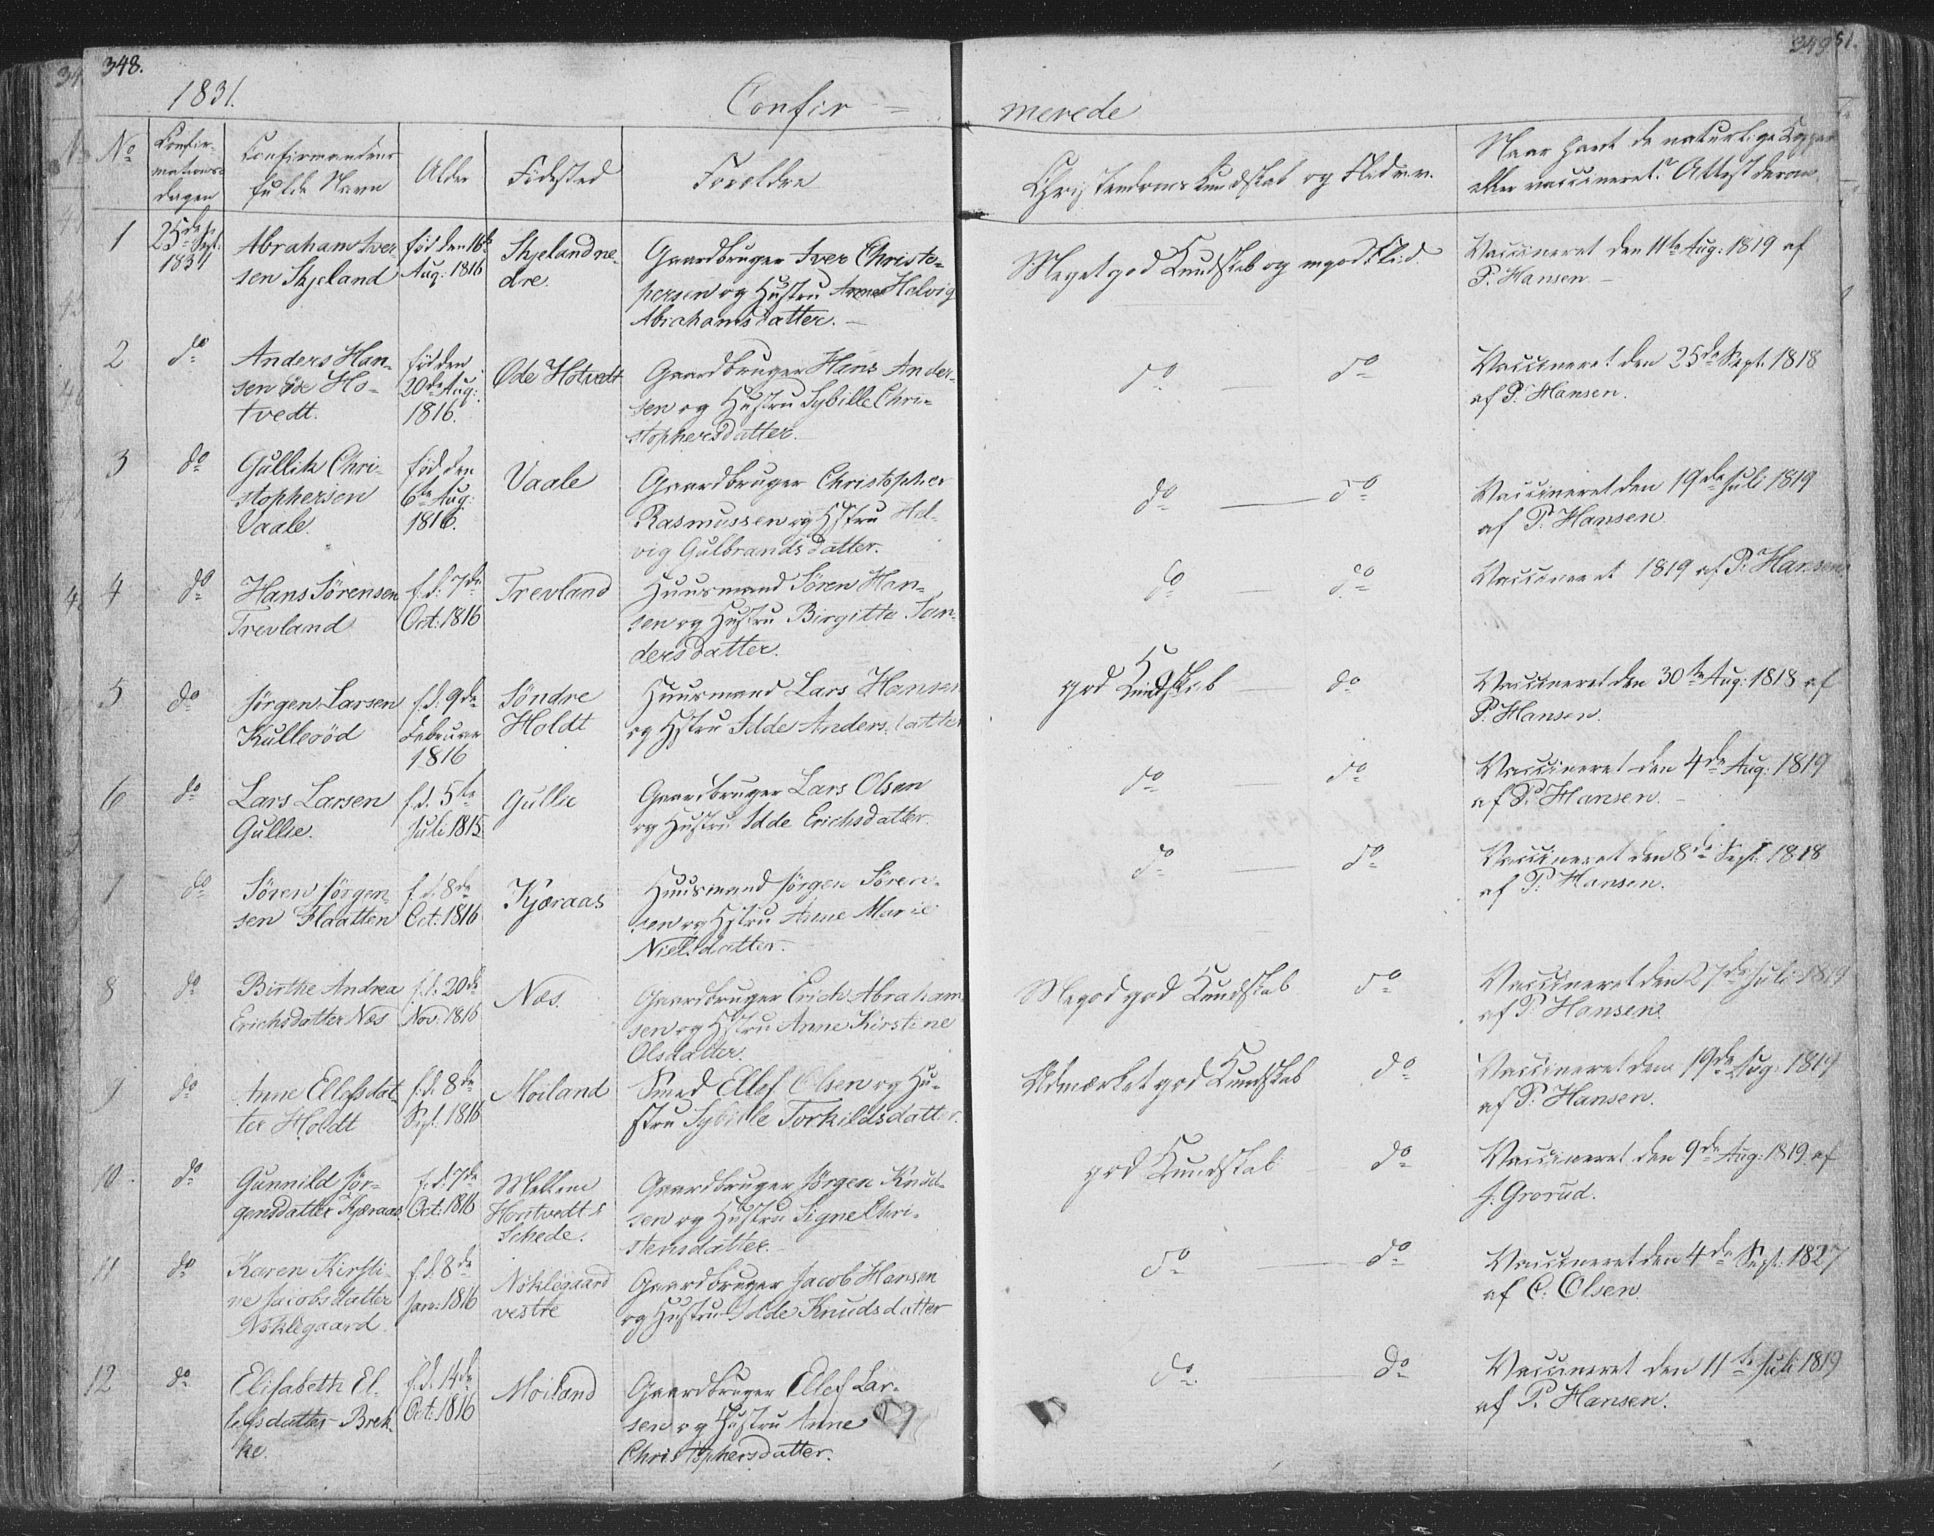 348.
349
51.
1831.
Confir=
merede
No
Confir-
mations-
dagen
Confirmandens
fulde Navn
Alder
Fødested
Forældre
Christendoms Kundskab og Flid m.v.
Naar havt de naturlige Kopper
eller vaccineret? Attest derom.
1
25de Sept.
1831
Abraham Iver-
sen Skjeland
fød den 16de
Aug: 1816
Skjeland ne-
dre.
Gaardbruger Iver Christo-
phersen og Hustru Anne Helvig
Abrahamsdatter.
Meget god Kundskab og megod Flid.
Vaccineret den 11te Aug: 1819 af
P. Hansen
2
do
Anders Han-
sen Øde Ho-
tvedt.
fød den
20de Aug:
1816.
Øde Hotvedt
Gaardbruger Hans Ander-
sen og Hustru Sybille Chri-
stophersdatter.
do
do
Vaccineret den 25de Sept. 1818
af P. Hansen.
3
do
Gullik Chri-
stophersen
Vaale.
fød den
6te Aug:
1816.
Vaale
Gaardbruger Christopher
Rasmussen og Hstru Hel-
vig Gulbrandsdatter.
do
do
Vaccineret den 19de Juli 1819
af P. Hansen.
4
do
Hans Sørensen
Trevland
f. d. 7de
Oct: 1816
Trevland
Huusmand Søren Han-
sen og Hustru Birgitte San-
dersdatter.
do
do
Vaccineret 1819 af P. Hansen.
5
do
Jørgen Larsen
Kulleröd
f. d. 9de
Februar
1816
Söndre
Holdt
Huusmand Lars Hansen
og Hstru Idde Andersdatter
god Kundskab
do
Vaccineret den 30te Aug: 1818 af
P. Hansen.
6
do
Lars Larsen
Gullie.
f. d. 5te
Juli 1815
Gullie
Gaardbruger Lars Olsen
og Hustru Idde Erichsdatter.
do
do
Vaccineret den 4de Aug: 1819
af P. Hansen.
7
do
Søren Jørgen-
sen Haatten
f. d. 8de
Oct: 1816
Kjæraas
Huusmand Jørgen Søren-
sen og Hstru Anne Marie
Nielsdatter.
do
do
Vaccineret den 8de Sept: 1818
af P. Hansen.
8
do
Birthe Andrea
Erichsdatter Næs
f. d. 20de
Nov. 1816
Næs.
Gaardbruger Erich Abraham-
sen og Hstru Anne Kirstine
Olsdatter.
Megod god Kundskab
do
Vaccineret den 27de Juli 1819
af P. Hansen.
9
do
Anne Ellefsdat-
ter Holdt
f. d. 8de
Sept. 1816
Moiland
Smed Ellef Olsen og Hu-
stru Sybille Torkildsdatter.
Udmærket god Kundskab
do
Vaccineret den 19de Aug: 1819
af P. Hansen.
10
do
Gunnild Jør-
gensdatter Kjæraas
f. d. 7de
Oct: 1816
Mellem
Hostvedts
Schede.
Gaardbruger Jørgen Knud-
sen og Hustru Signe Chri-
stensdatter.
god Kundskab
do
Vaccineret den 9de Aug: 1819 af
J. Grorud.
11
do
Karen Kirsti-
ne Jacobsdatter
Nöklegaard
f. d. 8de
Jan: 1816
Nöklegaard
vestre
Gaardbruger Jacob Hansen
og Hustru Idde Knudsdatter
do
do
Vaccineret den 4de Sept: 1827
af C. Olsen.
12
do
Elisabeth El-
lefsdatter Brek-
ke.
f. d. 14de
Oct: 1816
Moiland
Gaardbruger Ellef Lar-
sen og Hustru Anne
Christophersdatter.
do
do
Vaccineret den 11te Juli 1819
af P. Hansen.